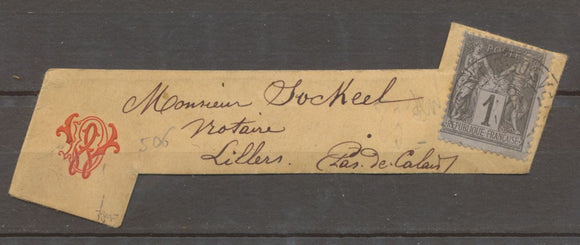 Monsieur Sockeel
Notaire
Lillers. (Pas-de-Calais)
506
POSTES
1
REPUBLIQUE FRANCAISE